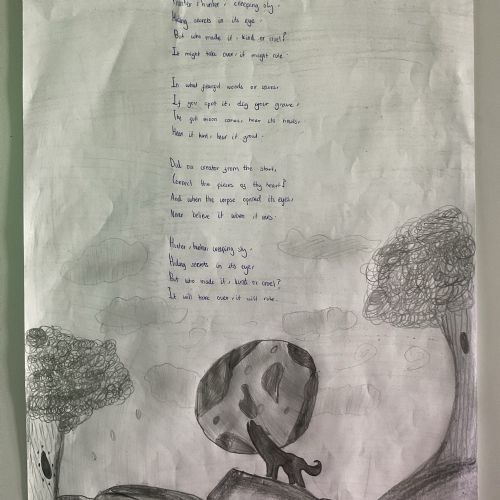 Hunter, hunter, creeping sly,
Hiding secrets in its eye.
But who made it, kind or cruel?
It might take over, it might rule.
In what fearful woods or
If you spot it, dig your grave,
The full moon comes, hear its howls,
Hear it hunt, hear it growl.
Did creator from the start,
Connect the pieces of thy heart?
And when the corpse opened its eyes,
Never believe it when it
Hunter, hunter, creeping sly,
Hiding secrets in its eye,
But who made it, kind or cruel?
It will take over, it will rule.